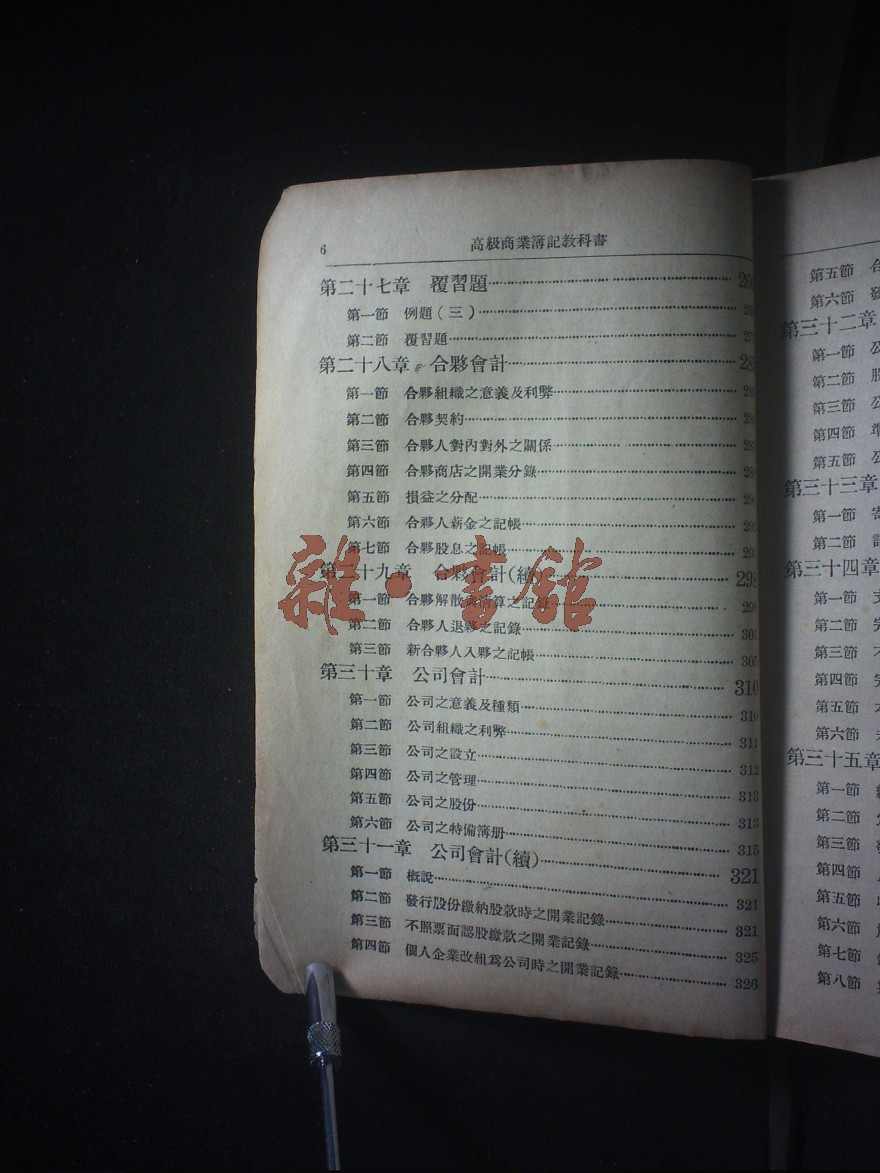 6
高級商業簿記教科書
第二十七章 覆習題
第一節 例題(三)
第二節 覆習題
第二十八章 合夥會計
第一節 合夥組織之意義及利弊
第二節 合夥契約
第三節 合夥人對內對外之關係
第四節 合夥商店之開業分錄
第五節 損益之分配
第六節 合夥人薪金之記帳
第七節 合夥股息之記帳
第二十九章 合夥會計(續) 298
第一節 合夥解散與清算之記錄
第二節 合夥人退夥之記錄 301
第三節 新合夥人入夥之記帳 305
第三十章 公司會計 310
第一節 公司之意義及種類 310
第二節 公司組織之利弊 311
第三節 公司之設立 312
第四節 公司之管理 313
第五節 公司之股份 313
第六節 公司之特備簿册 315
第三十一章 公司會計(續) 321
第一節 概說 321
第二節 發行股份繳納股款時之開業記錄 321
第三節 不照票面認股繳款之開業記錄 325
第四節 個人企業改組爲公司時之開業記錄 326
雜·書館
第五節
第六節
第三十二章
第一節
第二節
第三節
第四節
第五節
第三十三章
第一節
第二節
第三十四章
第一節
第二節
第三節
第四節
第五節
第六節
第三十五章
第一節
第二節
第三節
第四節
第五節
第六節
第七節
第八節